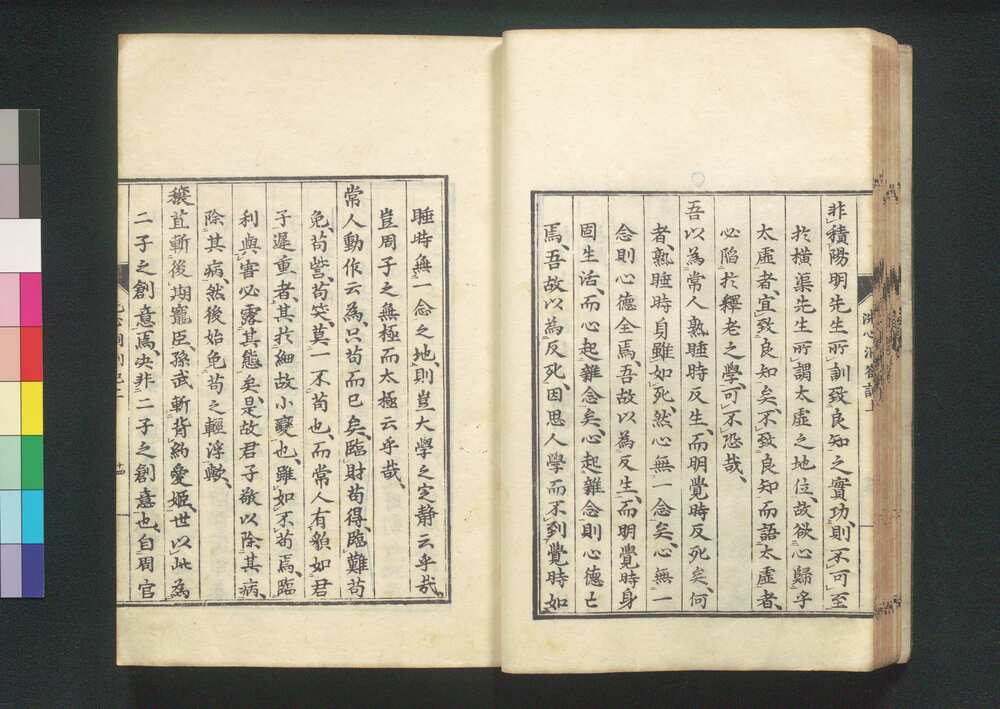 非積陽明先生所訓致良知之實功、則不可至
於橫渠先生所謂太虛之地位、故欲心歸乎
太虛者、宜致良知矣、不致良知而語太虛者、
必陷於釋老之學、可不恐哉、
吾以為常人熟睡時反生、而明覺時反死矣、何
者、熟睡時身雖如死、然心無一念矣、心無一
念則心德全焉、吾故以為反生、而明覺時身
固生活、而心起雜念矣、心起雜念則心德亡
焉、吾故以為反死、因思人學而不到覺時如
洗心洞劄記上
睡時無一念之地、則豈大學之定靜云乎哉、
豈周子之無極而太極云乎哉、
常人動作云為、只苟而已矣、臨財苟得、臨難苟
免、苟訾、苟笑、莫一不苟也、而常人有貌如君
子遲重者、其於細故小變也、雖如不苟焉、臨
利與害必露其態矣、是故君子敬以除其病、
除其病、然後始免苟之輕浮歟、
穰苴斬後期寵臣、孫武斬背約愛姬、世以此為
二子之創意焉、決非二子之創意也、自周官